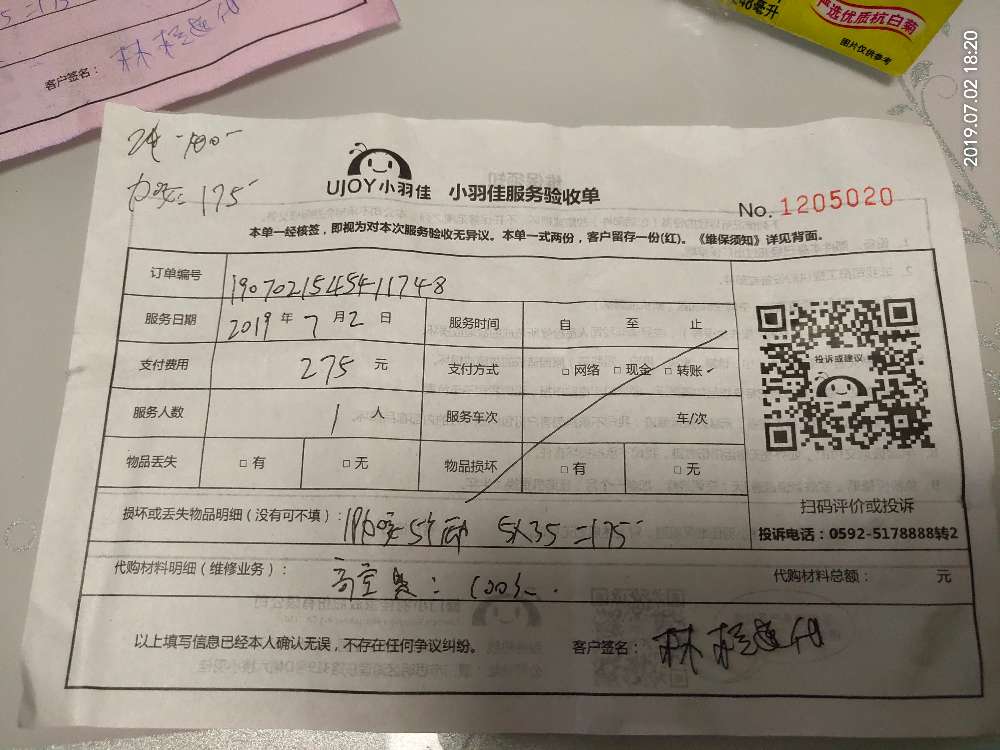 5=175
客户签名：
林
48毫升
严选优质杭白菊
图片仅供参考
2019.07.02 18:20
175
UJOY小羽佳 小羽佳服务验收单
No. 1205020
本单一经核签，即视为对本次服务验收无异议。本单一式两份，客户留存一份(红)。《维保须知》详见背面。
订单编号 19070215454411748
服务日期 2019 年 7 月 2 日 服务时间 自 至 止
支付费用 275 元 支付方式 □ 网络 □ 现金 □ 转账 ✓
服务人数 1 人 服务车次 车/次
物品丢失 □ 有 □ 无 物品损坏 □ 有 □ 无
投诉或建议
扫码评价或投诉
投诉电话：0592-5178888转2
损坏或丢失物品明细（没有可不填）： 5X35=175
代购材料明细（维修业务）： 高空费：100元. 代购材料总额： 元
以上填写信息已经本人确认无误，不存在任何争议纠纷。 客户签名： 林